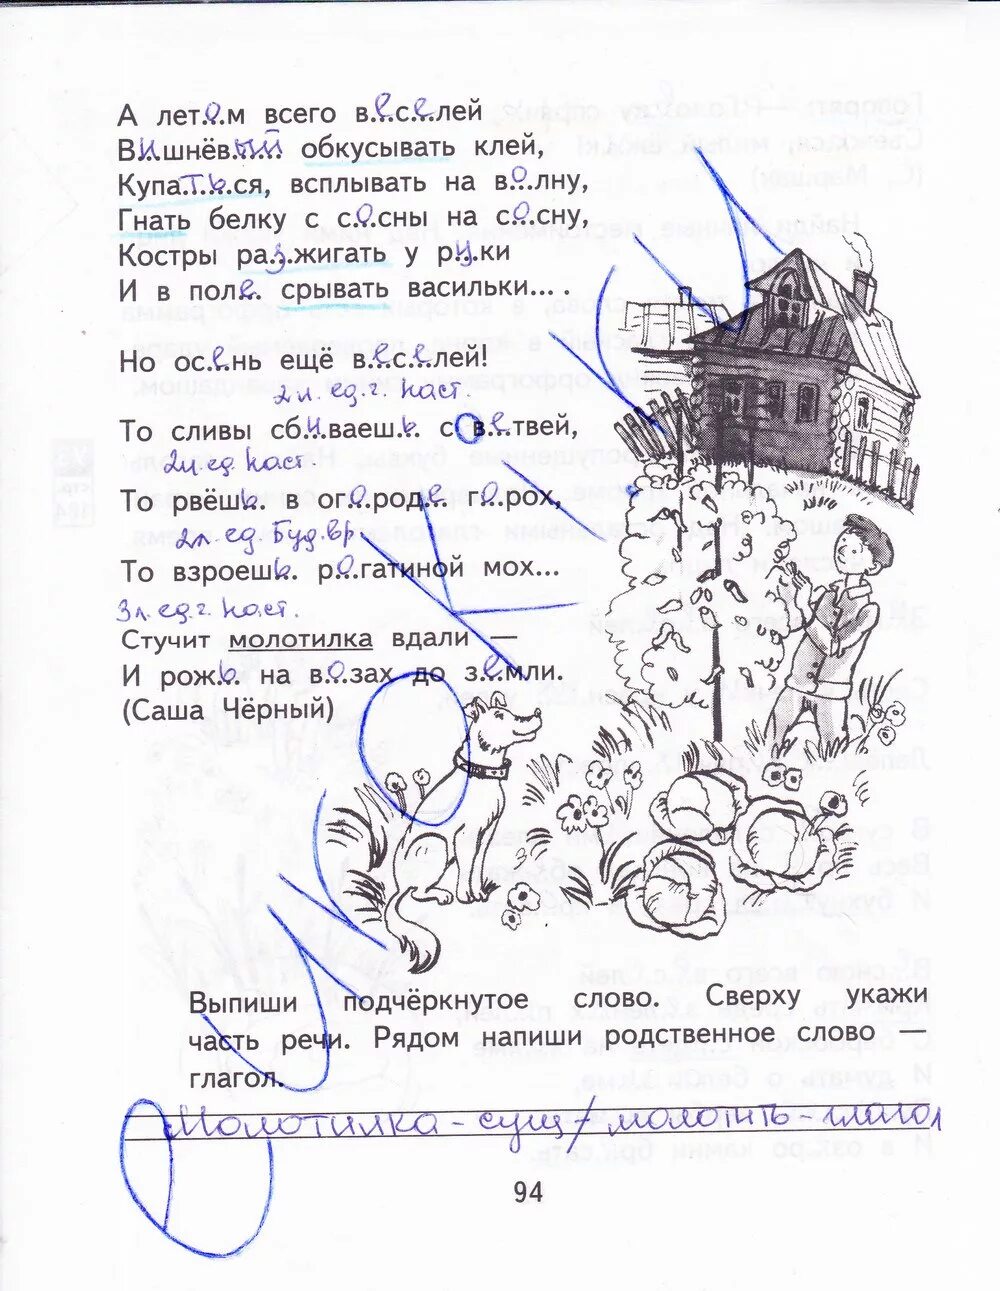 А лет.о.м всего в.е.с.е.лей
В.и.шнёв.ый. обкусывать клей,
Купа.ть.ся, всплывать на в.о.лну,
Гнать белку с с.о.сны на с.о.сну,
Костры ра.з.жигать у р.у.ки
И в пол.е. срывать васильки... .
Но ос.е.нь ещё в.е.с.е.лей!
2л. ед.ч. наст.
То сливы сб.и.ваеш.ь. с в.е.твей,
2л ед. наст.
То рвёш.ь. в ог.о.род.е. г.о.рох,
2л ед. Буд. вр
То взроеш.ь. р.о.гатиной мох...
3л. ед.ч. наст.
Стучит молотилка вдали —
И рож.ь. на в.о.зах до з.е.мли.
(Саша Чёрный)
Выпиши подчёркнутое слово. Сверху укажи
часть речи. Рядом напиши родственное слово —
глагол.
Молотилка - сущ / молотить - глагол
94